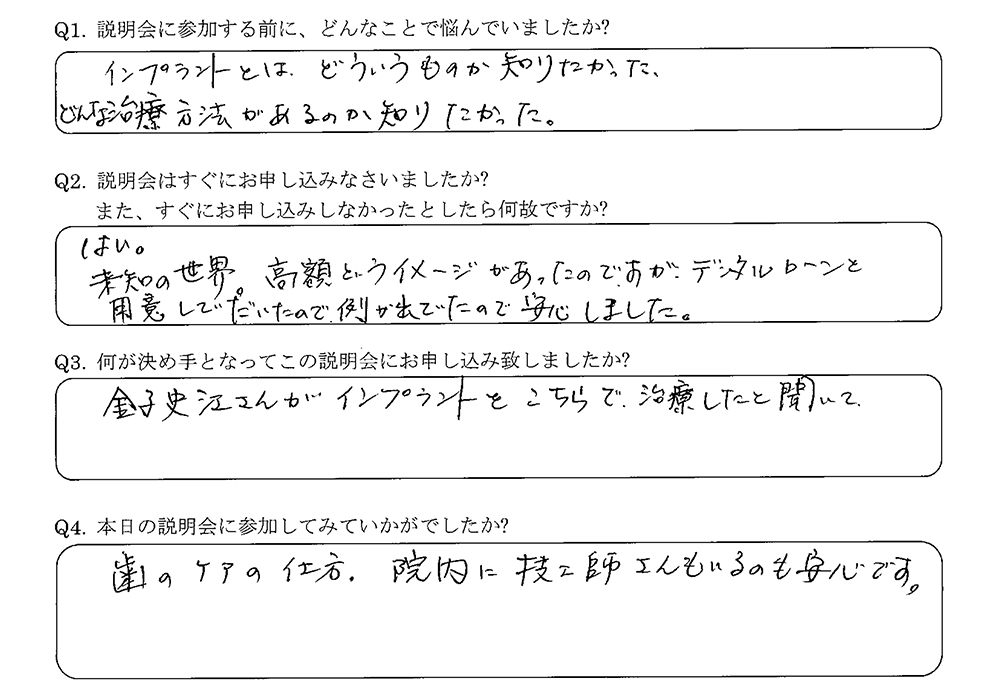 Q1. 説明会に参加する前に、どんなことで悩んでいましたか?
インプラントとは、どういうものか知りたかった、
どんな治療方法があるのか知りたかった。
Q2. 説明会はすぐにお申し込みなさいましたか?
また、すぐにお申し込みしなかったとしたら何故ですか?
はい。
未知の世界。高額というイメージがあったのですが、デンタルローンと
用意していただいたので、例が出ていたので安心しました。
Q3. 何が決め手となってこの説明会にお申し込み致しましたか?
金子史江さんがインプラントをこちらで、治療したと聞いて、
Q4. 本日の説明会に参加してみていかがでしたか?
歯のケアの仕方、院内に技工師さんもいるのも安心です。